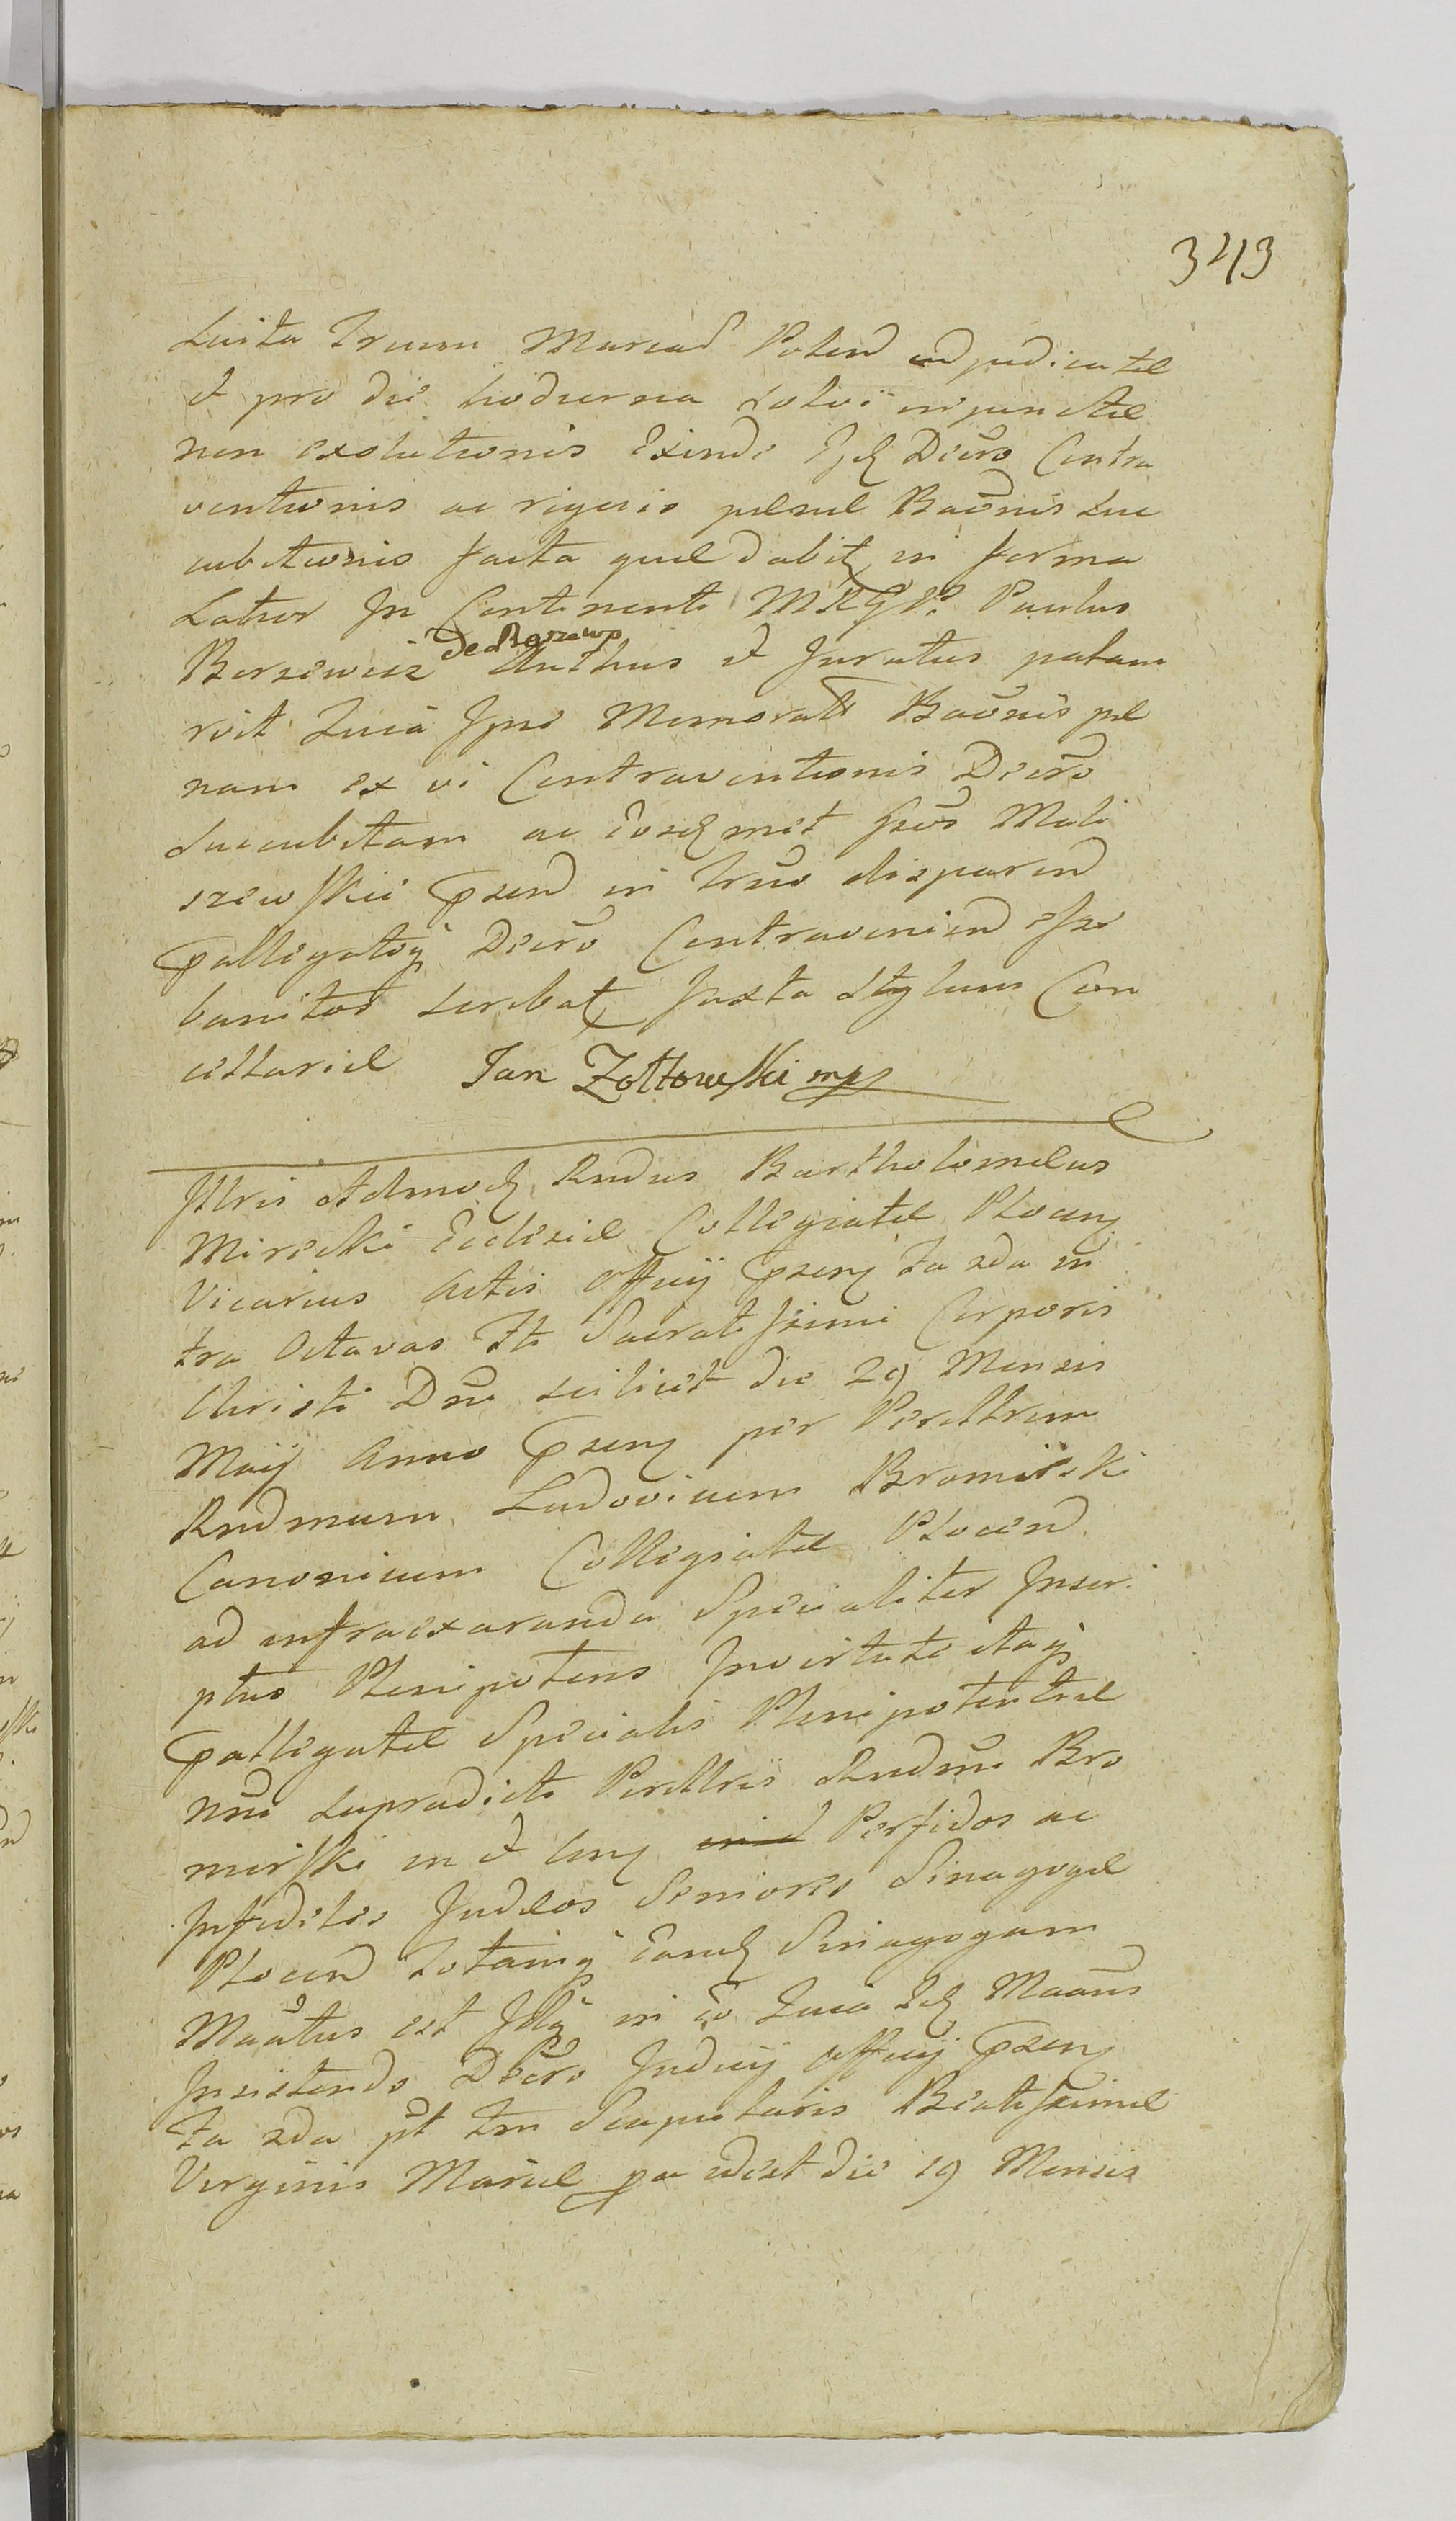 343
Luita Trium Marcas Polend adjudicatae
et pro die hodierna solvi injunctae
non exolutionis Exinde Ejq Decro Contra
ventionis ac rigoris paenae Baõnis suc
cubitionis facta quae dabitq in forma
Latior In Continenti MRGP. Paulus
de Borzewo
Borzewicz Authus et Juratus palam
rvit Quia Ipse Memoratt Baõnis pae
nam ex vi Contraventionis Decro
succubitam ac Eosq met Gsos Mali
szewskie pzend in trno disparend
palligatoq Decro Contravenien esse
banitos scribatq Juxta Stylum Can
cellariae Jan Zołtowski mp
Illris Admodq Rndus Bartholomaeus
Mirecki Ecclesiae Collegiatae Plocen
Vicarius Actis Officij pzenq fa 2da in
tra Octavas Fti Sacratissimi Corporis
Christi Dni scilicet die 29 Mensis
Maij Anno pzenq per Perillrem
Rndmum Ludovicum Bromirski
Canonicum Collegiatae Plocend
ad infraexaranda Specialiter Inscri
ptus Plenipotens Invirtute itaq
palligatae Specialis Plenipotentiae
Nne supradicti Perillris Rndmi Bro
mirski in et Conq Perfidos ac
Infideles Judaeos Seniores Sinagogae
Plocend totamq Eandq Sinagogam
Maãtus est Itaq in eo Quia Idq Maãns
Insistendo Decro Judicij Officij pzenq
fa 2da pt ftm Scapularis Beatissimae
Virginis Mariae pa idest die 19 Mensis